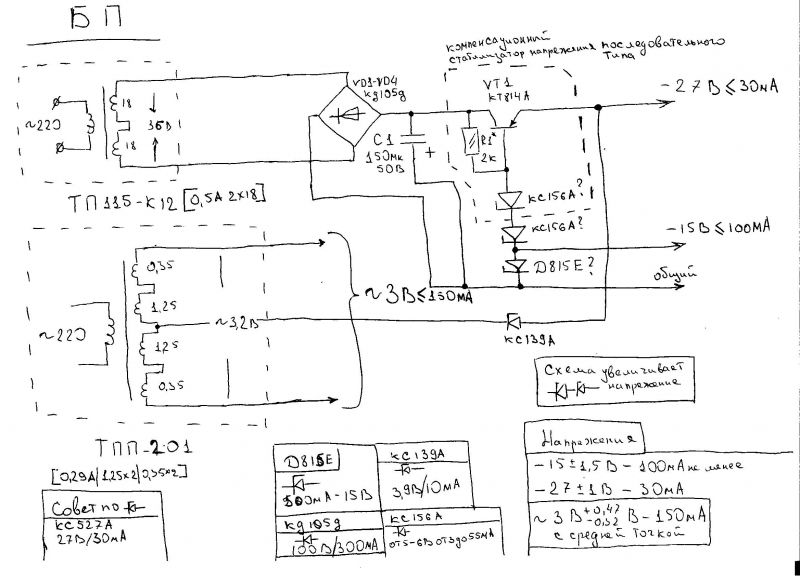 БП
компенсационный
стабилизатор напряжения последовательного
типа
VT1
КТ814А
-27В≤30мА
VD1-VD4
кд105д
~220
18
18
36В
C1
150мк
50В
+
R1*
2к
КС156А?
КС156А?
-15В≤100мА
Д815Е?
общий
ТП115-К12 [0,5А 2х18]
0,35
1,25
1,25
0,35
~220
~3,2В
~3В≤150мА
КС139А
Схема увеличивает
напряжение
ТПП-201
[0,29А|1,25х2|0,35х2]
Совет по
КС527А
27В/30мА
Д815Е
500мА-15В
КС139А
3,9В/10мА
кд105д
100В/300мА
КС156А
от5-6В от3до55мА
Напряжения
-15±1,5В-100мА не менее
-27±1В-30мА
~3В+0,47-0,52В-150мА
с средней точкой